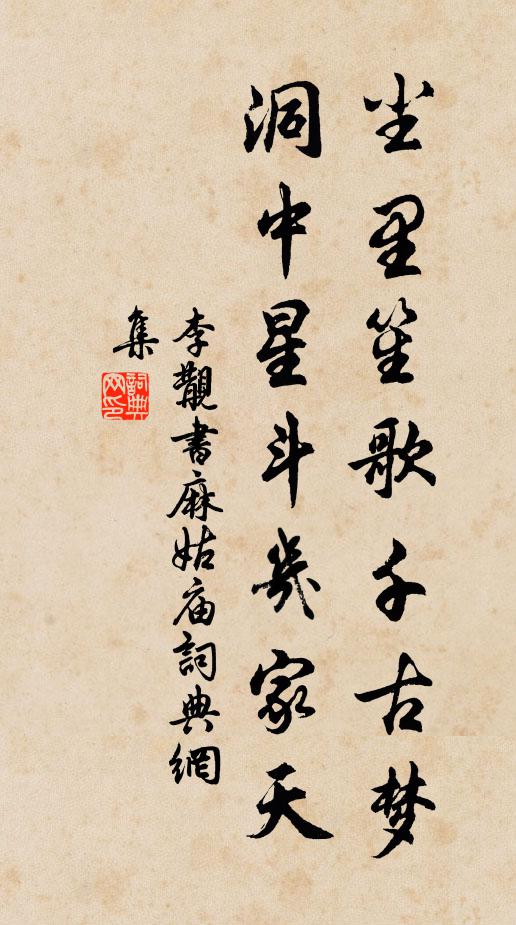 尘里笙歌千古梦
洞中星斗几家天
李觏書麻姑庙詞典網
集
詞典
网印